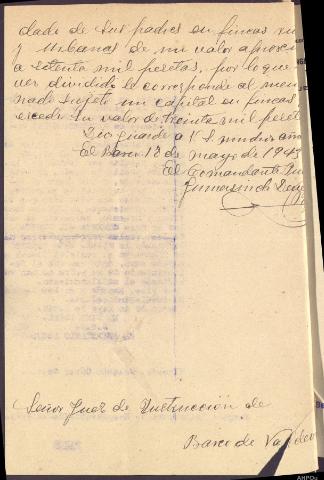 dado de sus padres en fincas
y Urbanas de un valor aproxi
a setenta mil pesetas, por lo que
ver dividido le corresponde al men
nado sujeto un capital en fincas
excede su valor de treinta mil peset
Dios guarde a V.S. muchos años
El Barco 12 de mayo de 1943
El Comandante
Gumersindo
Señor Juez de Instrucción de
Barco de Valdeo
AHPOu